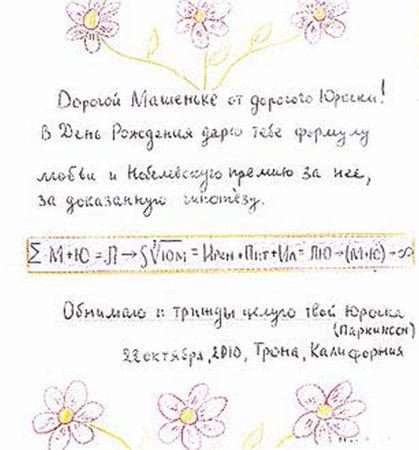 Дорогой Машеньке от дорогого Юрочки!
В День Рождения дарю тебе формулу
любви и Нобелевскую премию за нее,
за доказанную гипотезу.
∑ М+Ю = Л → ∫∛ЮМ = + + = ЛЮ → (М+Ю) → ∞
Обнимаю и трижды целую твой Юрочка
(Паркинсон)
22 октября, 2010, Трона, Калифорния